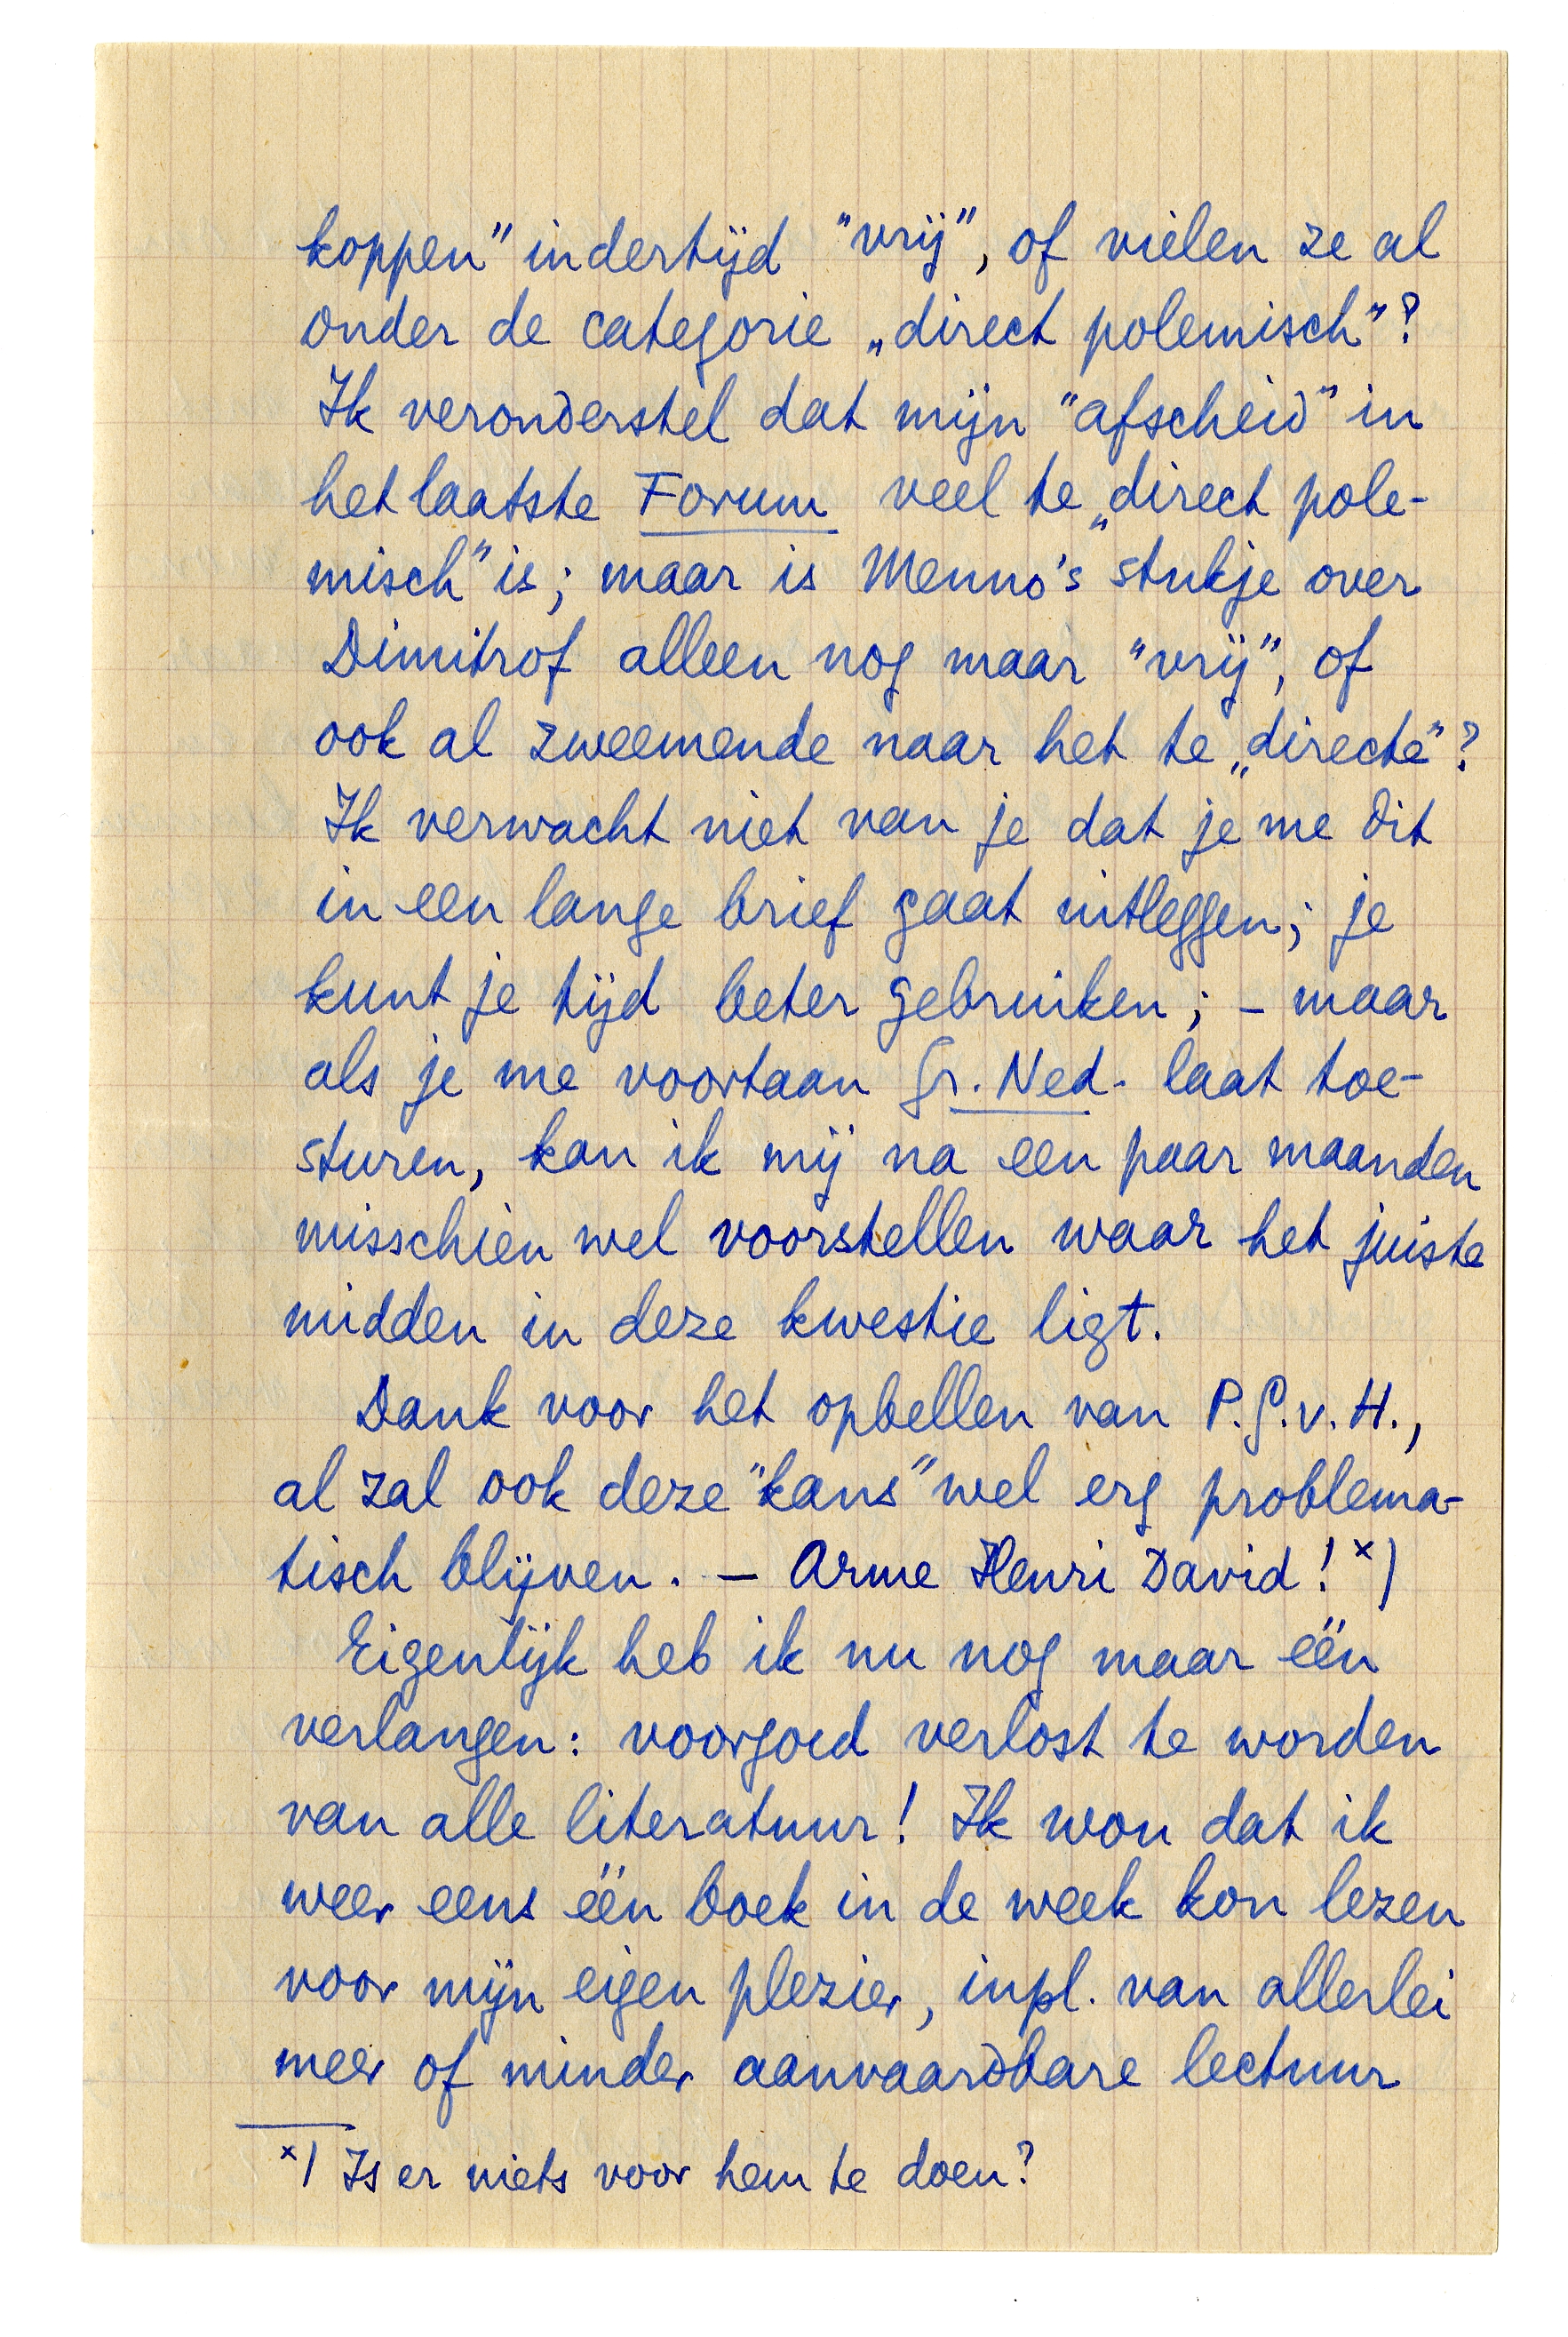 koppen" indertijd "vrij", of vielen ze al
onder de categorie „direct polemisch"?
Ik veronderstel dat mijn "afscheid" in
het laatste Forum veel te „direct pole-
misch" is; maar is Menno's stukje over
Dimitrof alleen nog maar "vrij", of
ook al zweemende naar het te „directe"?
Ik verwacht niet van je dat je me dit
in een lange brief gaat uitleggen; je
kunt je tijd beter gebruiken; – maar
als je me voortaan Gr. Ned. laat toe-
sturen, kan ik mij na een paar maanden
misschien wel voorstellen waar het juiste
midden in deze kwestie ligt.
Dank voor het opbellen van P.G.v.H.,
al zal ook deze "kans" wel erg problema-
tisch blijven. – Arme Henri David! x)
Eigenlijk heb ik nu nog maar één
verlangen: voorgoed verlost te worden
van alle literatuur! Ik wou dat ik
weer eens één boek in de week kon lezen
voor mijn eigen plezier, inpl. van allerlei
meer of minder aanvaardbare lectuur
x) Is er niets voor hem te doen?